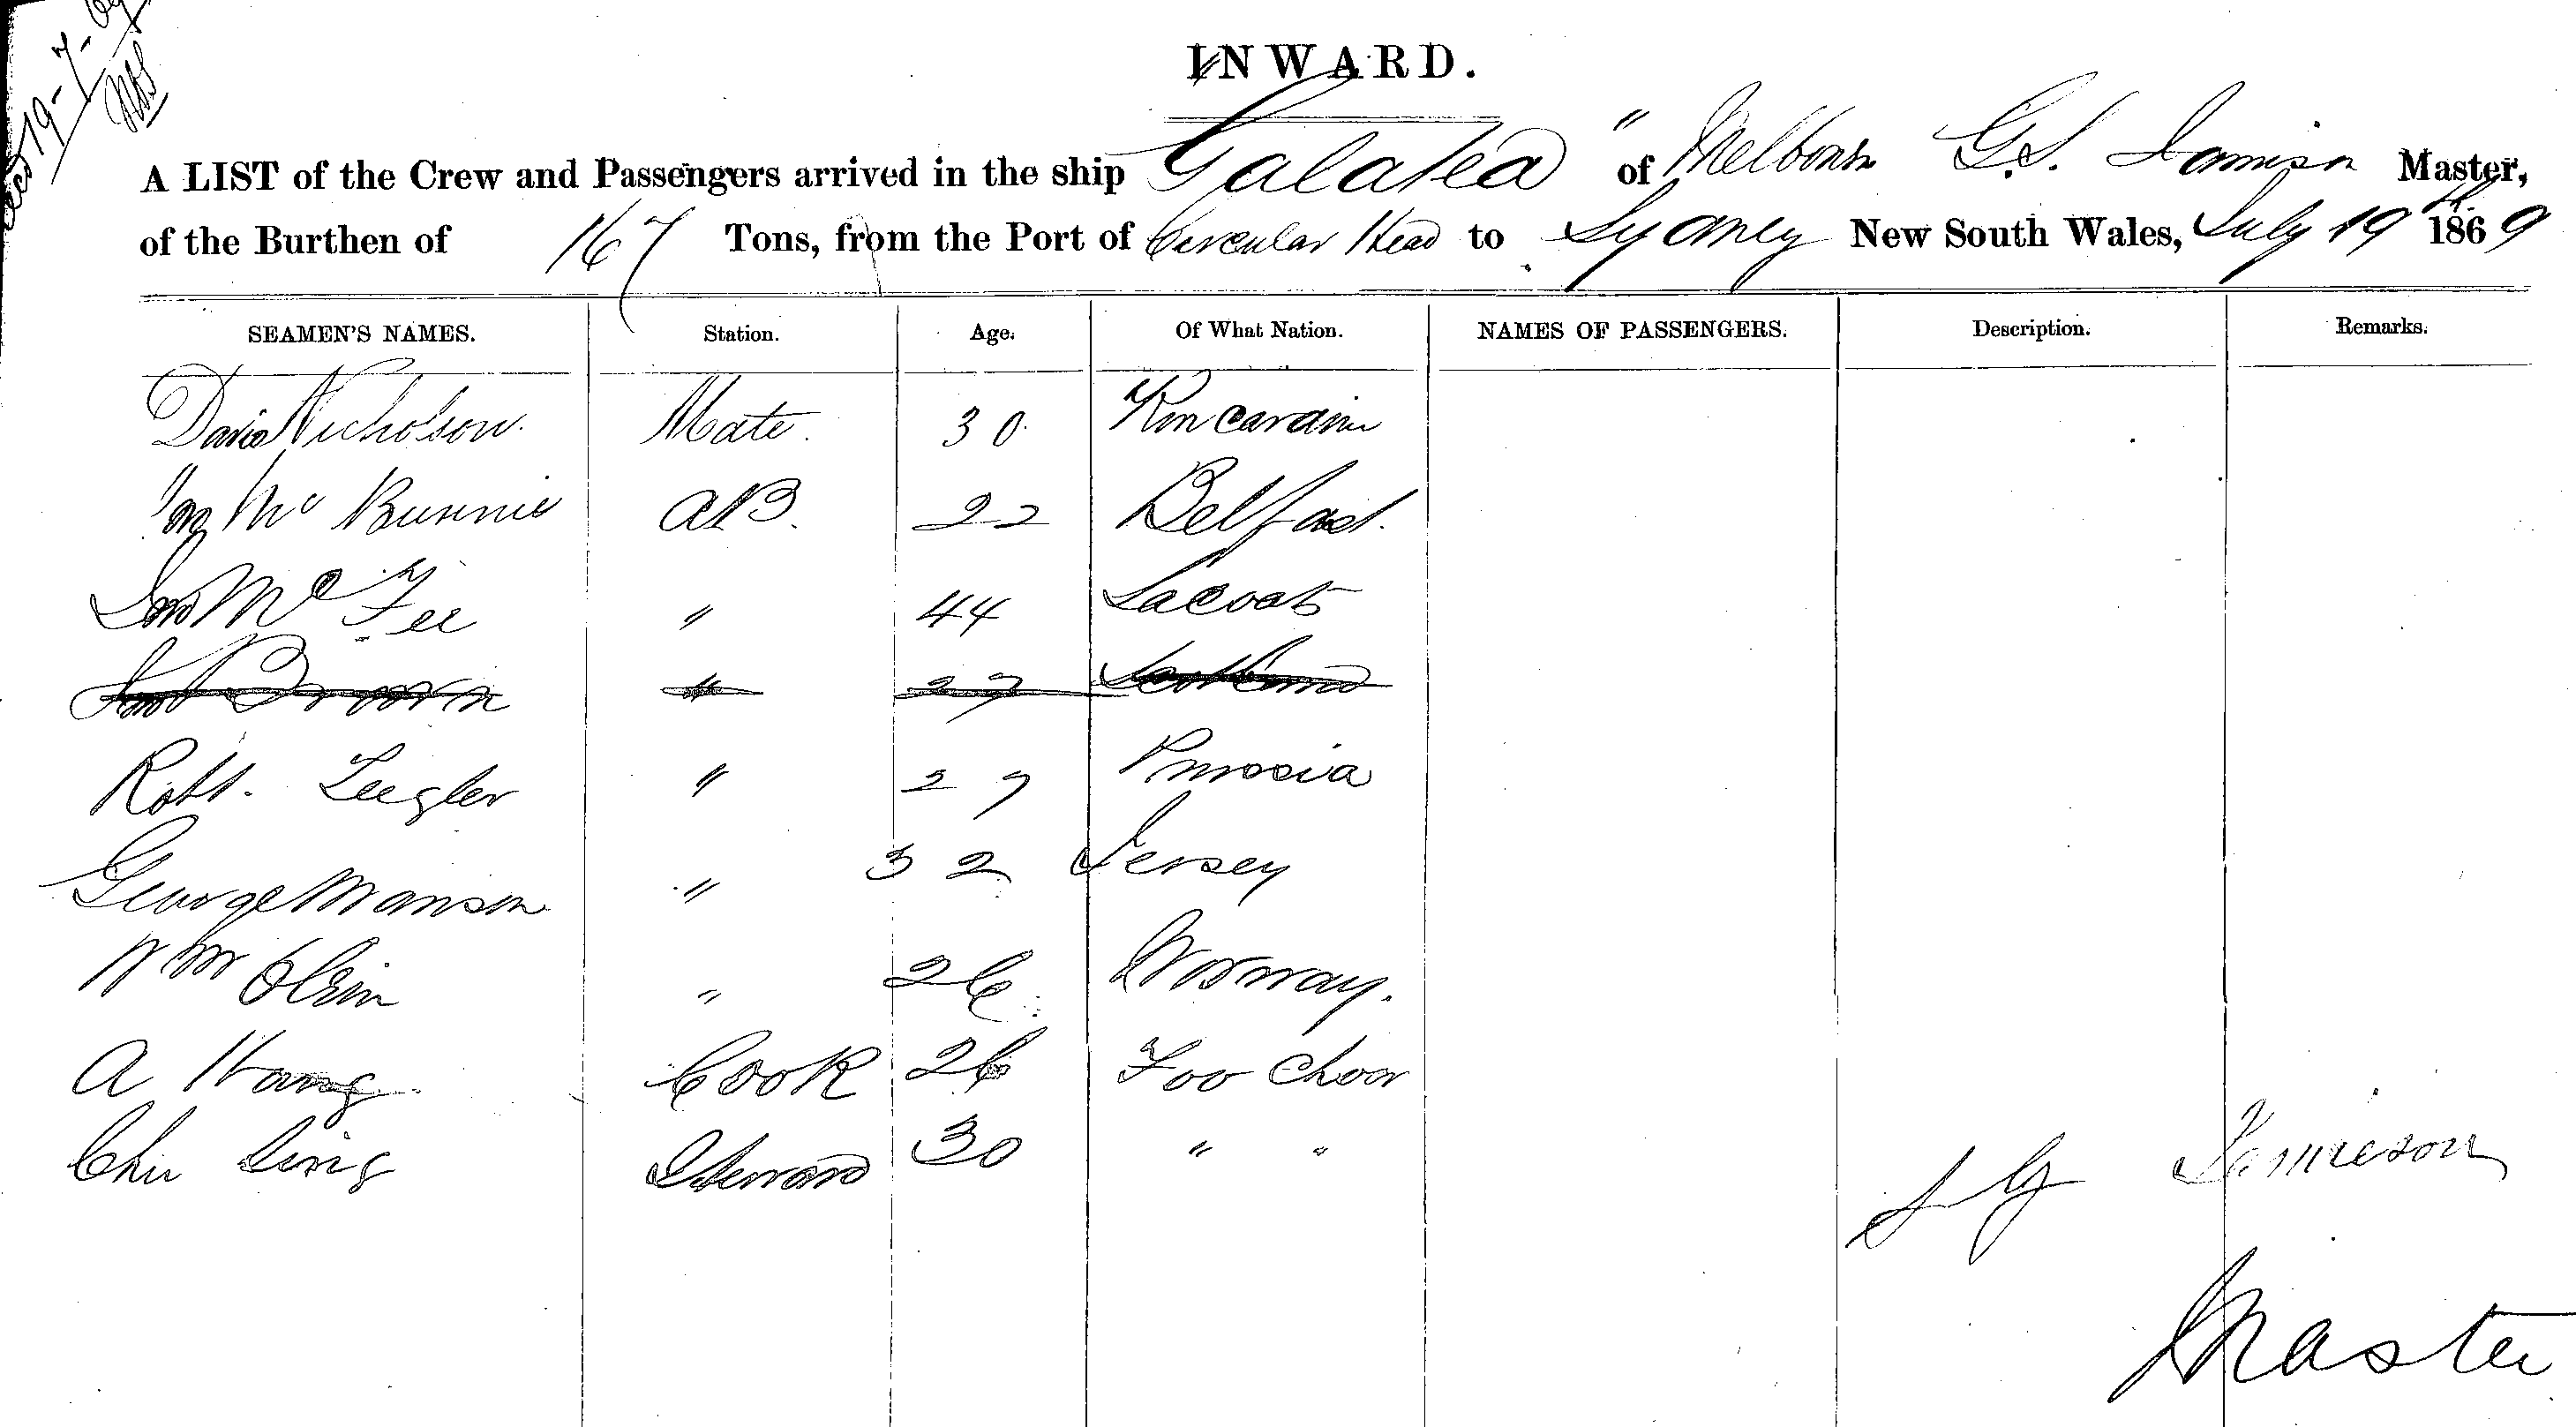 19-7-69
INWARD.
A LIST of the Crew and Passengers arrived in the ship Galatea " of Melbourn G.S. Jamison Master,
of the Burthen of 167 Tons, from the Port of Circular Head to Sydney New South Wales, July 19th 1869
SEAMEN'S NAMES. Station. Age. Of What Nation. NAMES OF PASSENGERS. Description. Remarks.
David Nicholson. Mate. 30. Kincardine
Mc Bunnie AB. 22 Belfast.
Mc Fee " 44
Brown " 27 Scotland
Robt. Zeigler " 27 Prussia
George Manson " 32 Jersey
Wm Olsin " 26 Norway.
A Hang Cook 26 Foo Choo
Chu Sing Steward 30 " "
Jamieson
Master